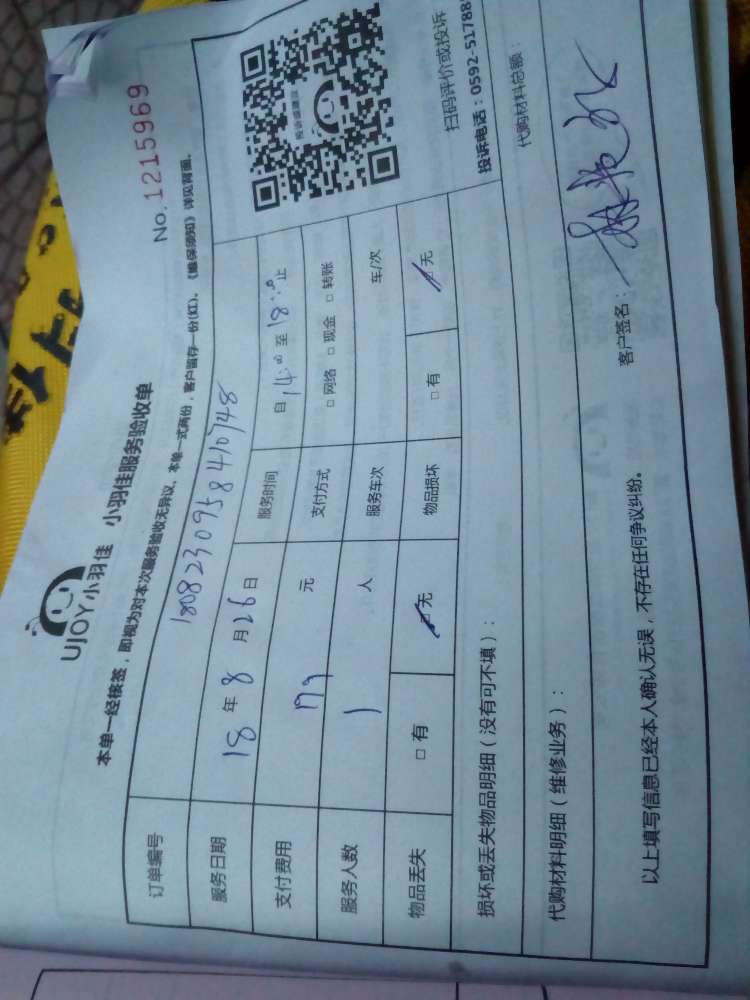 UJOY小羽佳 小羽佳服务验收单
No.1215969
本单一经核签，即视为对本次服务验收无异议，本单一式两份，客户留存一份(红)、《维保须知》详见背面。
订单编号 1808230958410748
服务日期 18年8月26日 服务时间 自14:00至18:00止
支付费用 179元 支付方式 □网络 □现金 □转账
服务人数 1人 服务车次 车/次
物品丢失 □有 □无 物品损坏 □有 □无
扫码评价或投诉
投诉电话：0592-51788
损坏或丢失物品明细（没有可不填）：
代购材料明细（维修业务）： 代购材料总额：
以上填写信息已经本人确认无误，不存在任何争议纠纷。 客户签名：